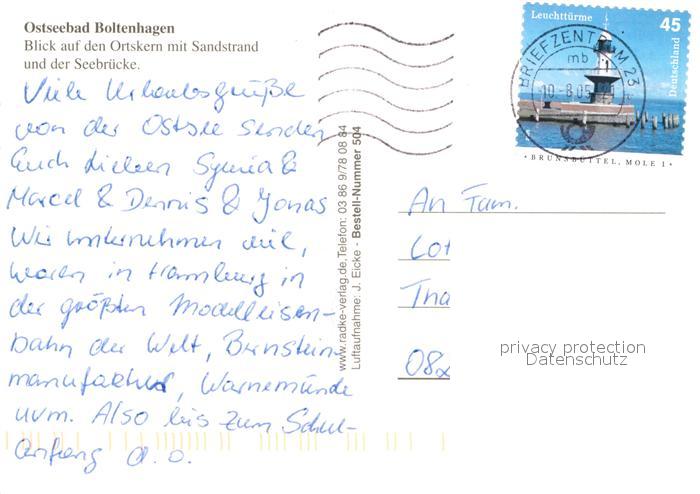 Ostseebad Boltenhagen
Blick auf den Ortskern mit Sandstrand
und der Seebrücke.
Viele Urlaubsgrüße
von der Ostsee senden
Euch Lieben Sylvia &
Marcel & Dennis & Jonas
Wir unternehmen viel,
waren in Hamburg in
der größten Modelleisen-
bahn der Welt, Bernstein-
manufaktur, Warnemünde
uvm. Also bis zum Schul-
anfang
www.radke-verlag.de, Telefon: 03 86 9/78 08 84
Luftaufnahme: J. Eicke - Bestell-Nummer 504
Leuchttürme
45
Deutschland
BRIEFZENTRUM 23
mb
10.-8.05
BRUNSBÜTTEL, MOLE 1
An Fam.
Lot
Tha
08
privacy protection
Datenschutz